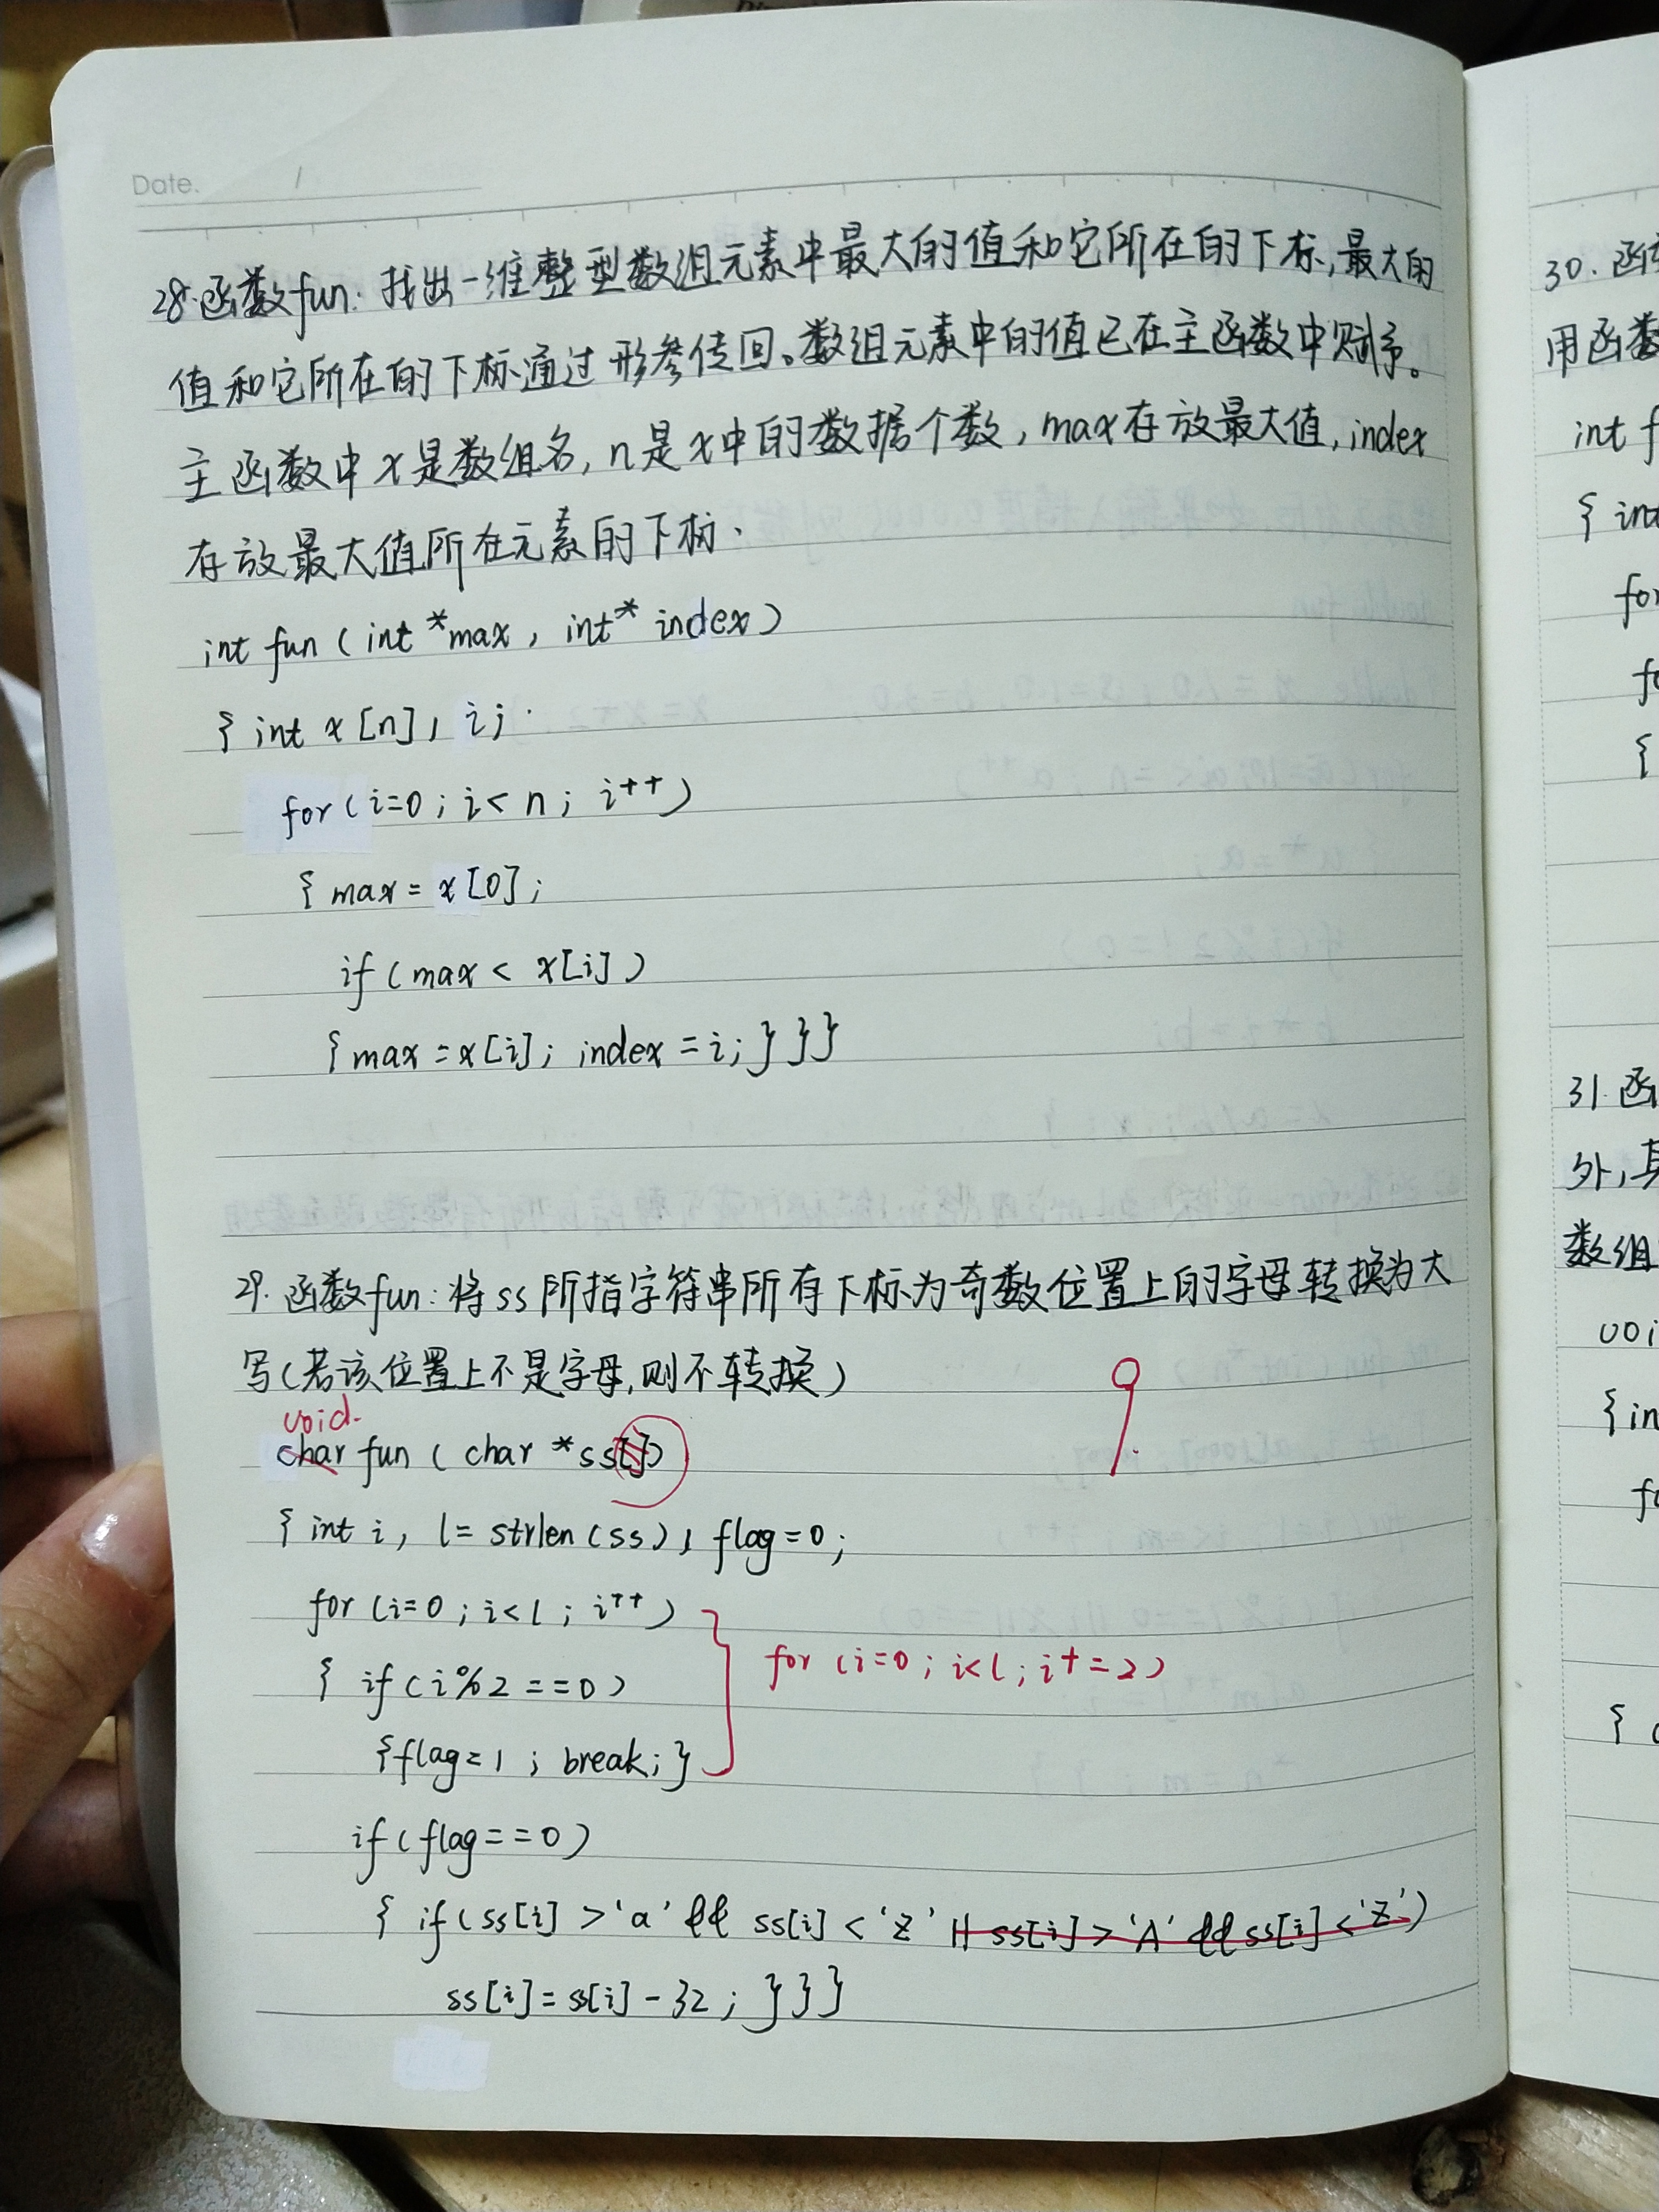 Date. /
28.函数fun:找出一维整型数组元素中最大的值和它所在的下标,最大的
值和它所在的下标通过形参传回。数组元素中的值已在主函数中赋予。
主函数中x是数组名,n是x中的数据个数,max存放最大值,index
存放最大值所在元素的下标.
int fun(int *max, int* index)
{int x[n], i;
for(i=0;i<n;i++)
{max=x[0];
if(max<x[i])
{max=x[i];index=i;}}}
29.函数fun:将ss所指字符串所有下标为奇数位置上的字母转换为大
写(若该位置上不是字母,则不转换)
void
char fun(char *ss[])
{int i, l=strlen(ss), flag=0;
for(i=0;i<l;i++)
{if(i%2==0)
{flag=1;break;}
for(i=0;i<l;i+=2)
if(flag==0)
{if(ss[i]>'a'&&ss[i]<'z'||ss[i]>'A'&&ss[i]<'Z')
ss[i]=ss[i]-32;}}}
30.函
用函数
int f
{int
for
fo
{
31.函
外,其
数组
voi
{in
fo
{